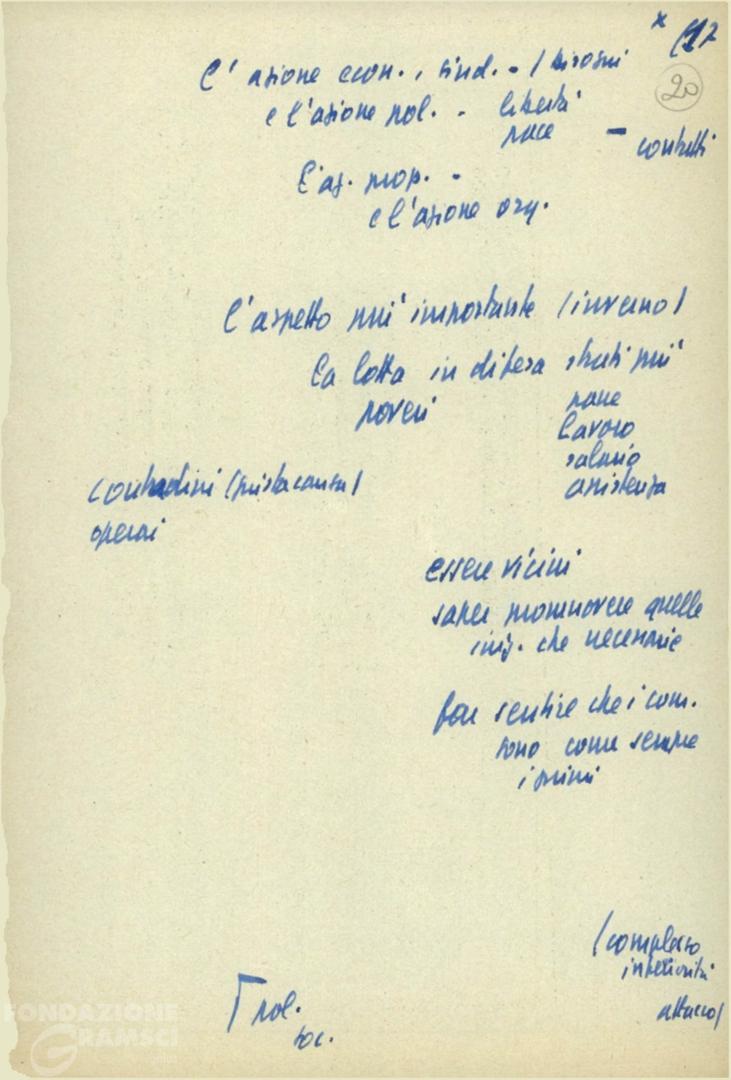 x (17
20
l'azione econ., sind. - / bisogni
e l'azione pol. - libertà
pace - contatti
l'az. prop. -
e l'azione org.
l'aspetto più importante (inverno)
la lotta in difesa strati più
poveri pane
lavoro
salario
assistenza
contadini (giusta causa)
operai
essere vicini
saper promuovere quelle
iniz. che necessarie
far sentire che i com.
sono come sempre
i primi
(complesso
inferiorità
attacco)
pol.
soc.
FONDAZIONE
GRAMSCI